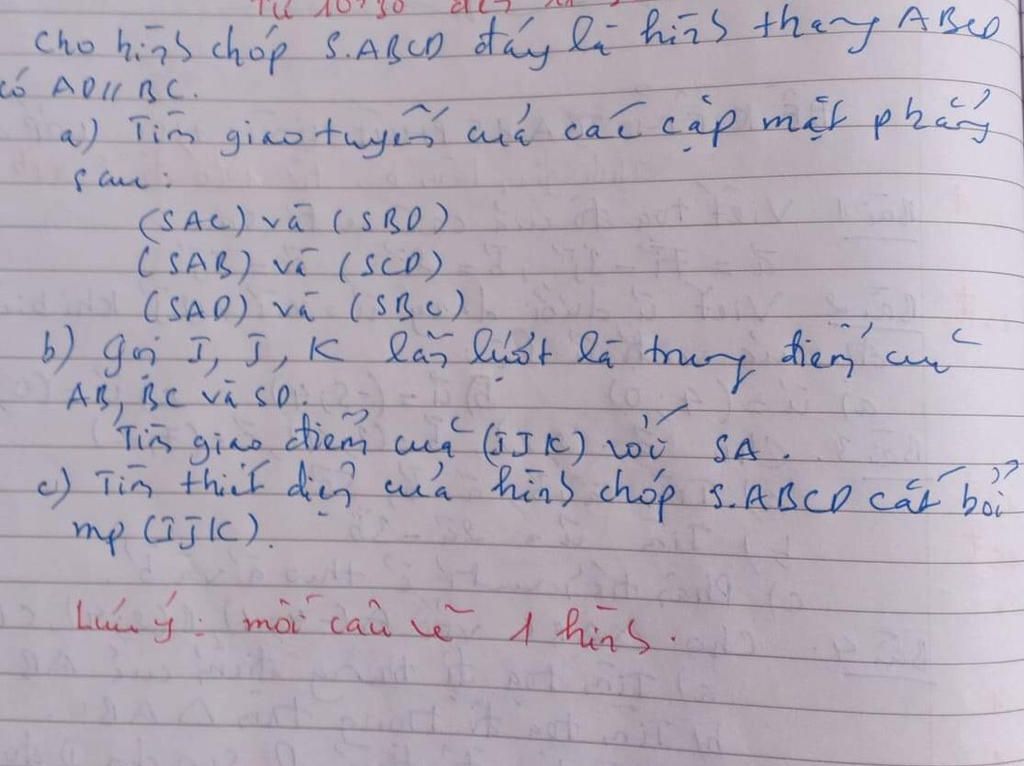 Từ 10h30 đến
Cho hình chóp S.ABCD đáy là hình thang ABCD
có AD // BC.
a) Tìm giao tuyến của các cặp mặt phẳng
sau:
(SAC) và (SBD)
(SAB) và (SCD)
(SAD) và (SBC)
b) Gọi I, J, K lần lượt là trung điểm của
AB, BC và SD.
Tìm giao điểm của (IJK) với SA.
c) Tìm thiết diện của hình chóp S.ABCD cắt bởi
mp (IJK).
Lưu ý: mỗi câu vẽ 1 hình.